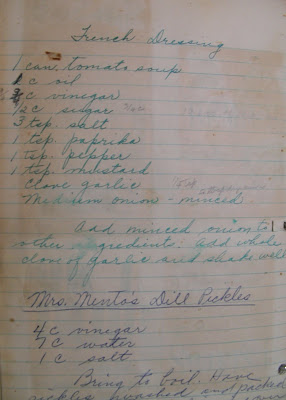 French Dressing
1 can tomato soup
1 c oil
3/4 c vinegar
1/2 c sugar
3 tsp. salt
1 tsp. paprika
1 tsp. pepper
1 tsp. mustard
clove garlic
Medium onion - minced
Add minced onion to
other ingredients. Add whole
clove of garlic and shake well
Mrs. Menta's Dill Pickles
4 c vinegar
7 c water
1 c salt
Bring to boil. Have
pickles washed and packed